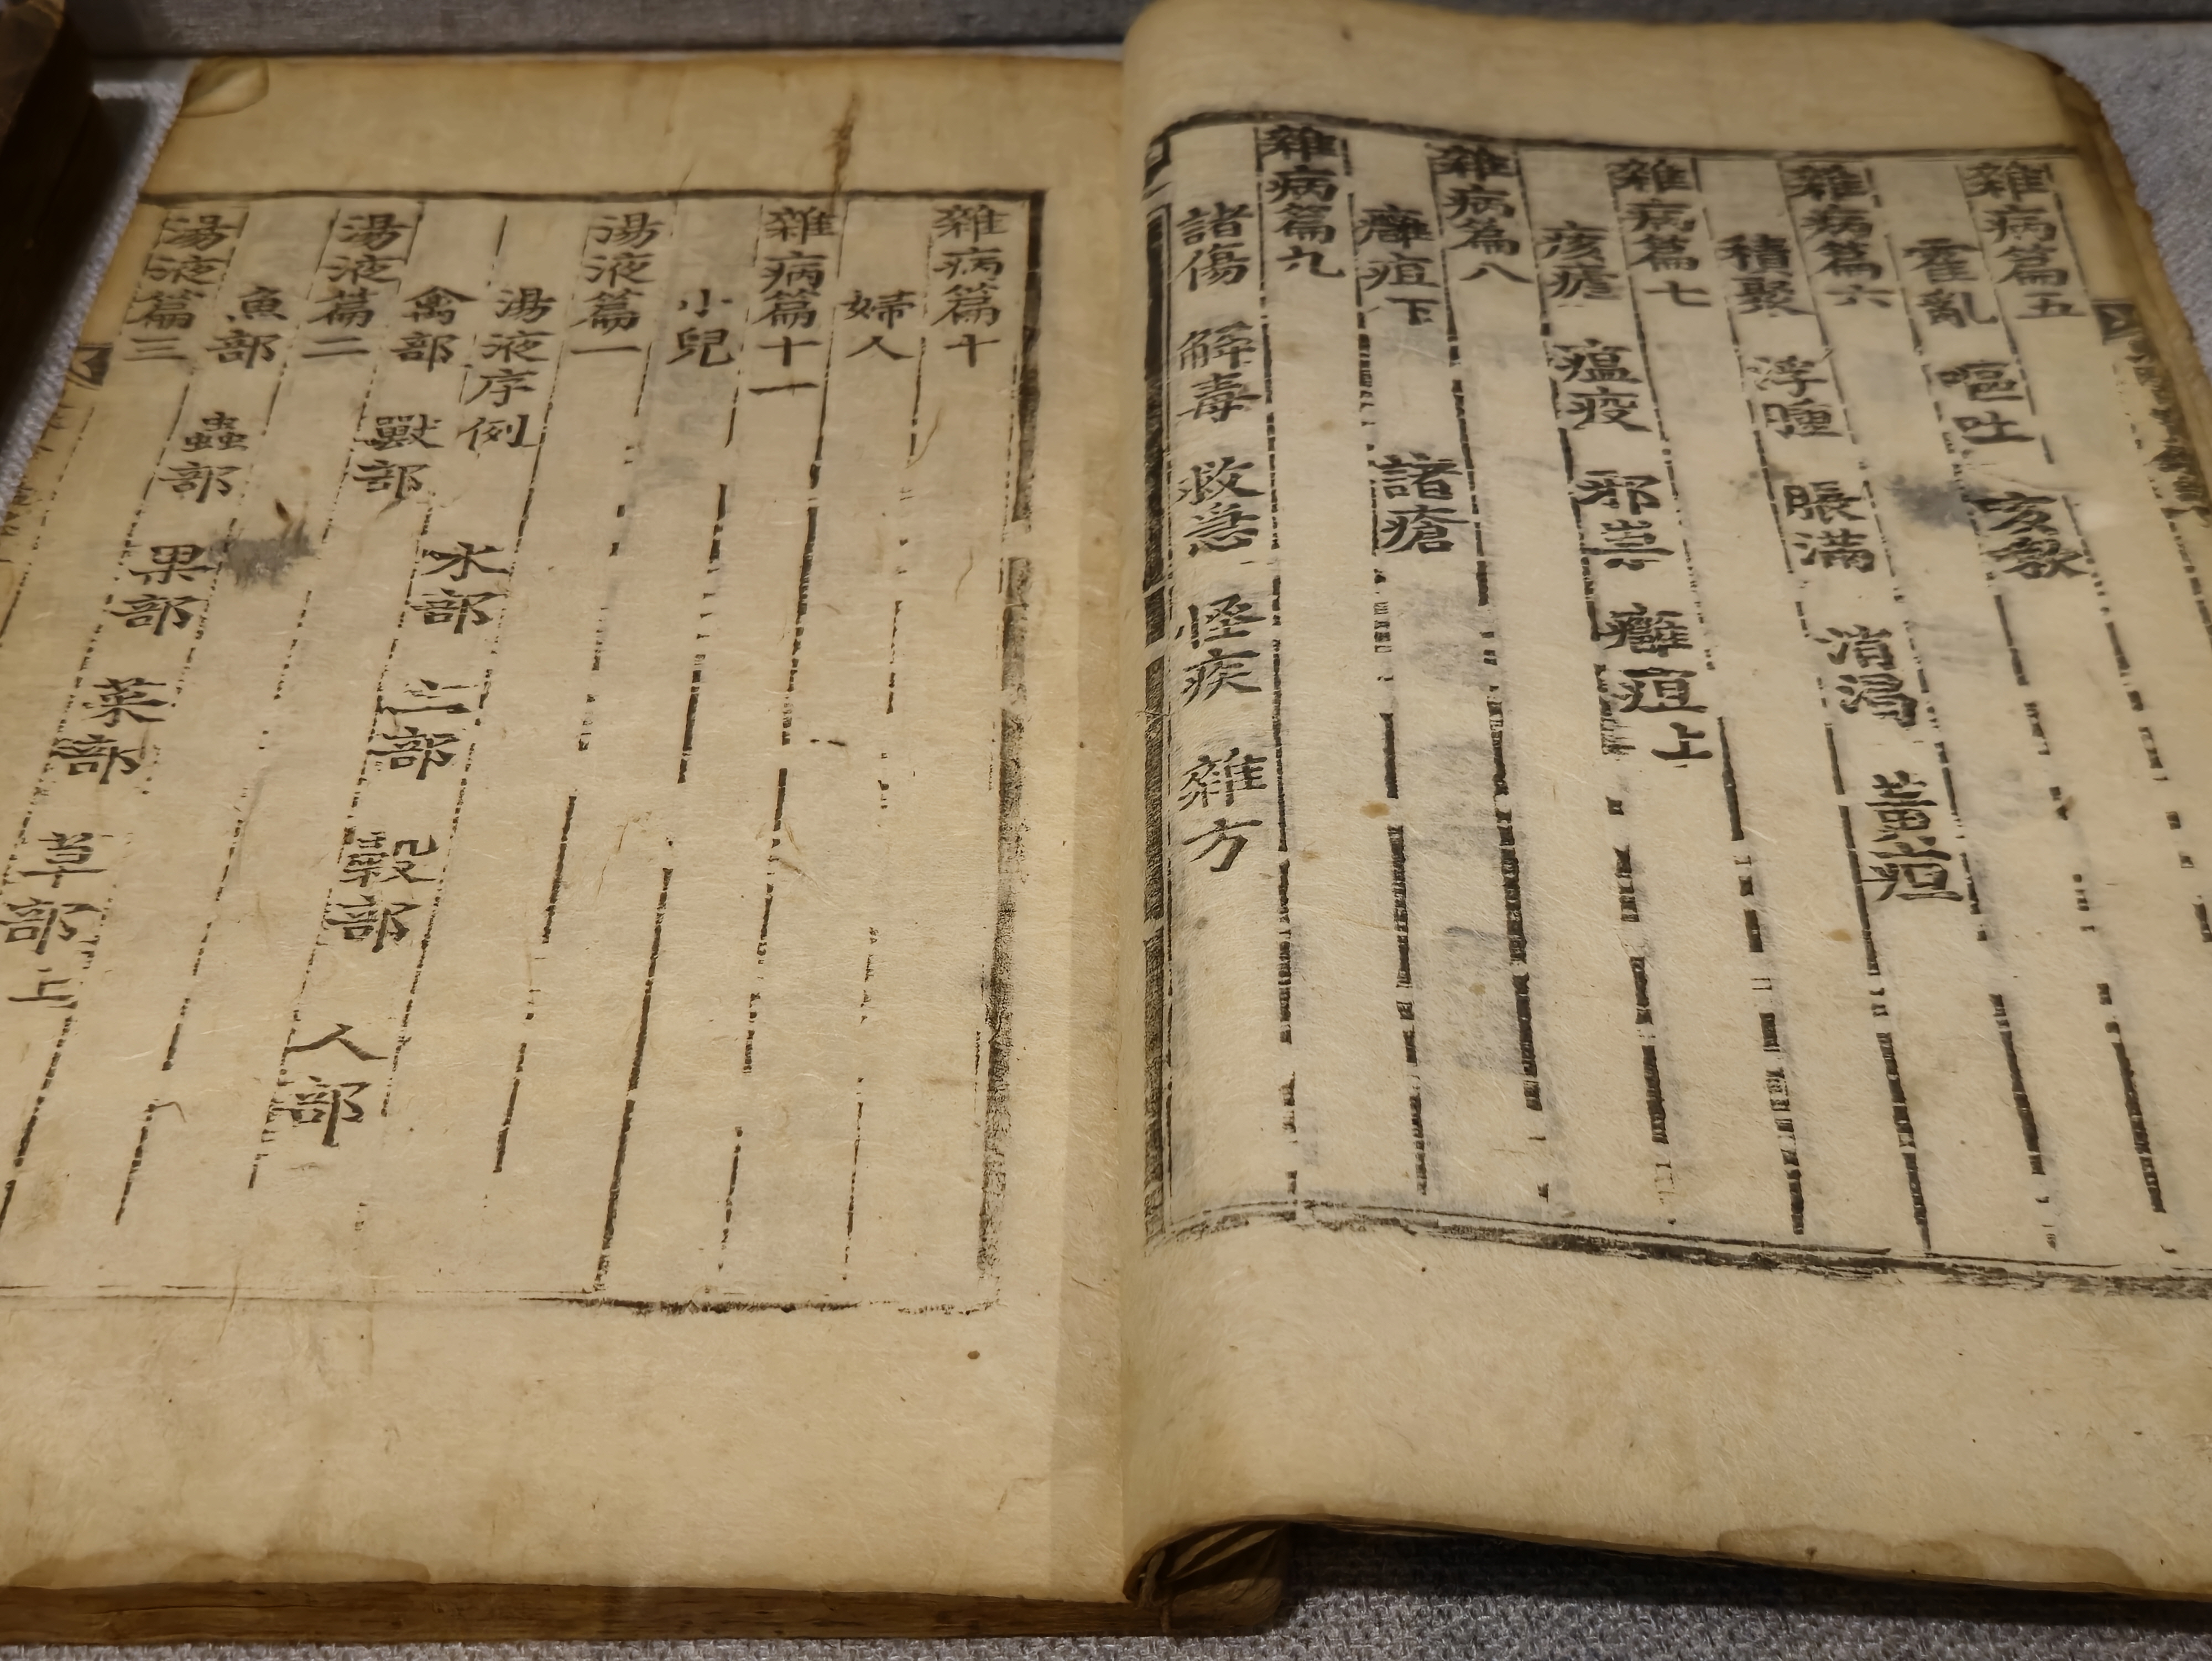 雜病篇五
霍亂 嘔吐 咳嗽
雜病篇六
積聚 浮腫 脹滿 消渴 黃疸
雜病篇七
痎瘧 瘟疫 邪祟 癰疽上
雜病篇八
癰疽下 諸瘡
雜病篇九
諸傷 解毒 救急 怪疾 雜方
雜病篇十
婦人
雜病篇十一
小兒
湯液篇一
湯液序例 水部 土部 穀部 人部
禽部 獸部
湯液篇二
魚部 蟲部 果部 菜部 草部上
湯液篇三